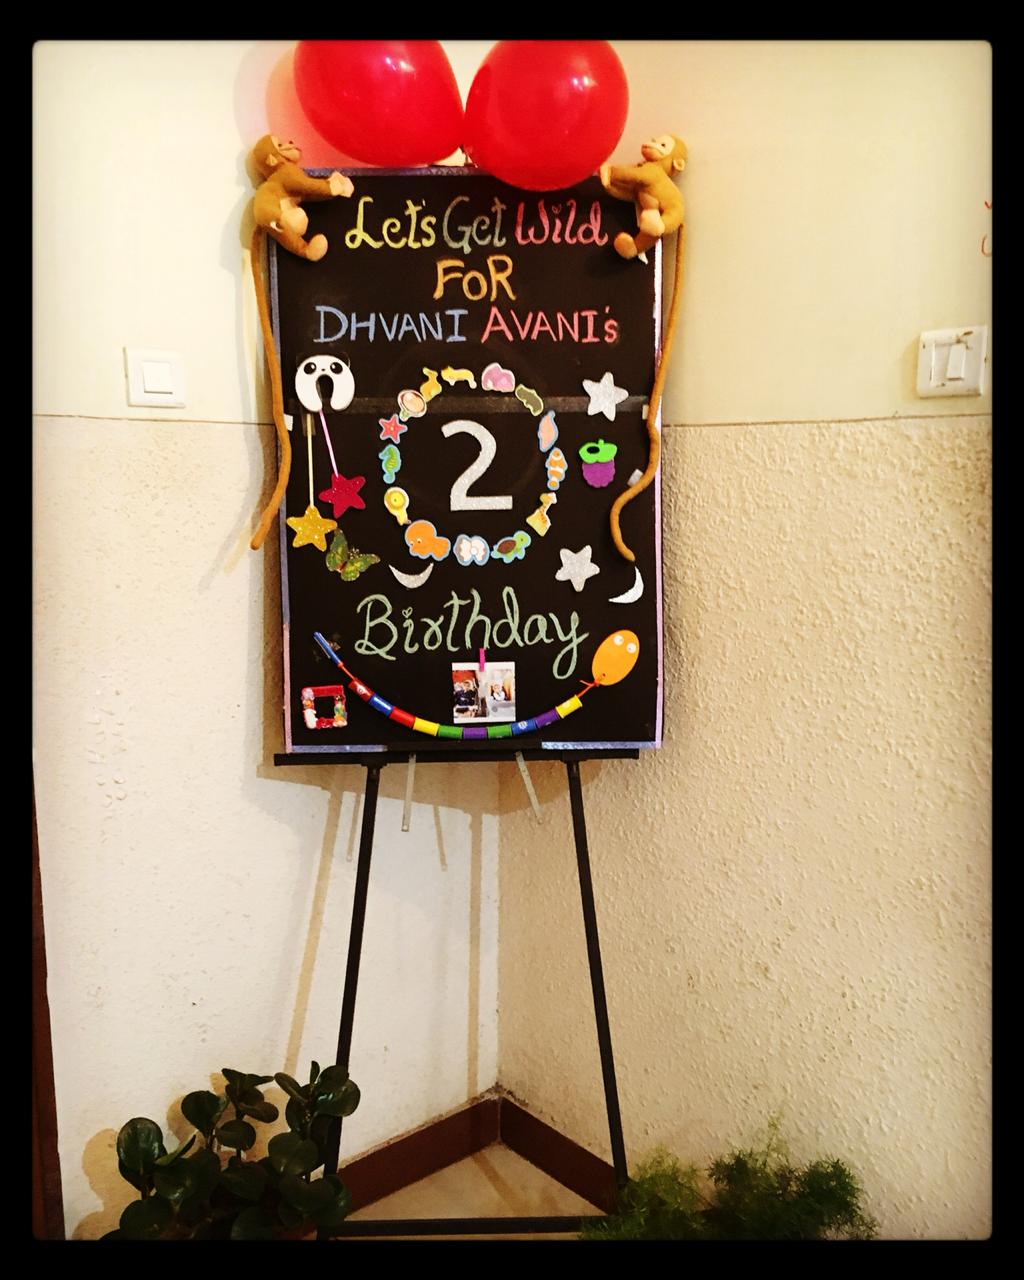 Let's Get Wild
FOR
DHVANI AVANI's
2
Birthday